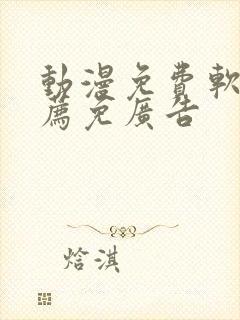 動漫免費軟
薦免廣告
焓淇